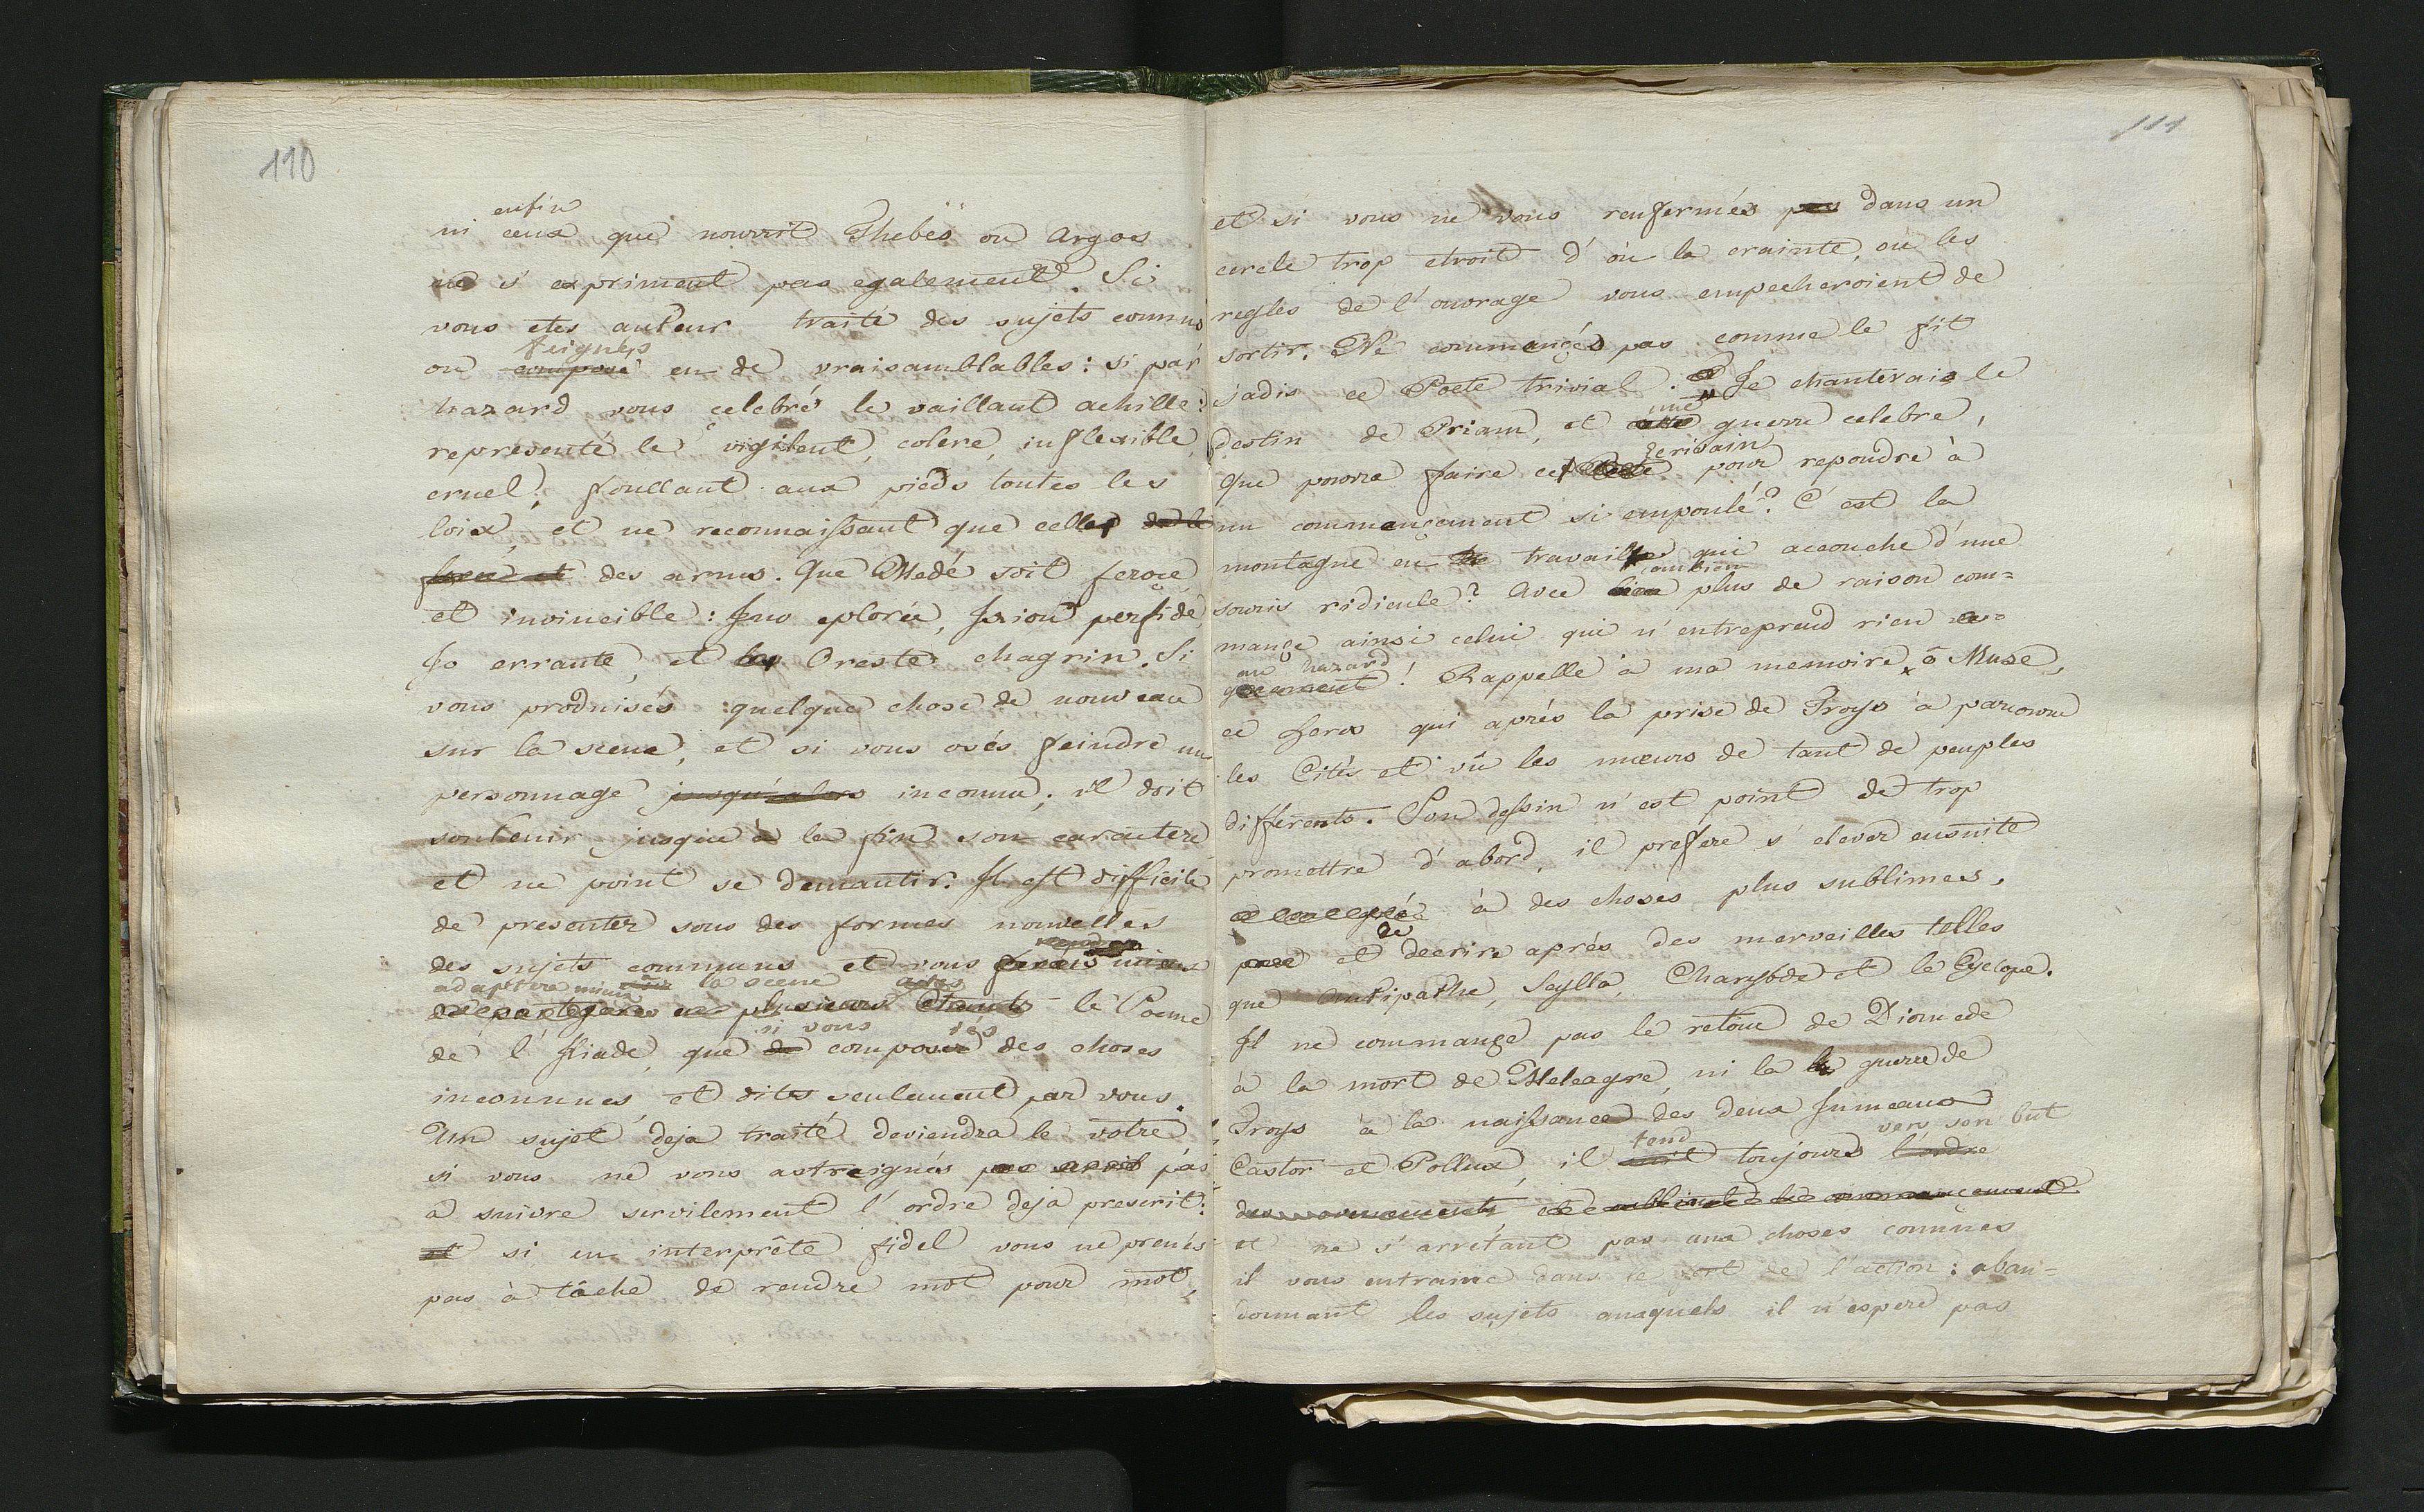 110
enfin
ni ceux que nourrit Thebes ou Argos
ne s'expriment pas egalement. Si
vous etes auteur traité des sujets connus
feignés
ou composé en de vraisamblables: si par
hazard vous celebré le vaillant achille:
representé le vigilent, colere, inflexible,
cruel, foullant aux pieds toutes les
loix, et ne reconnaissant que celles de la
force et des armes. Que Medé soit feroce
et invincible: Ino eplorée, Ixion perfide,
Io errante, et Oreste chagrin. Si
vous produisés quelque chose de nouveau
sur la scene, et si vous osés feindre un
personnage jusqu'alors inconnu; il doit
soutenir jusque à la fin son caractere
et ne point se demantir. Il est difficile
de presenter sous des formes nouvelles
des sujets communs et vous ferais mieux
adapttera mieux la scene
plusieurs Chants le Poeme
si vous sés
de l'Iliade, que de composer des choses
inconnues et dites seulement par vous.
Un sujet deja traité deviendra le votre
si vous ne vous astraignés pas
a suivre servilement l'ordre deja prescrit:
et si en interprête fidel vous ne prenés
pas à tâche de rendre mot pour mot,
111
et si vous ne vous renfermés pas dans un
cercle trop etroit d'où la crainte, ou les
regles de l'ouvrage vous empecheroient de
sortir. Ne commançés pas comme le fit
jadis ce Poete trivial. Je chanterais le
une
destin de Priam, et cette guerre celebre,
Ecrivain
Que pourra faire cet Poete pour repondre à
un commençement si ampoulé? C'est la
montagne en travail qui accouche d'une
combien
souris ridicule? Avec bien plus de raison com=
mançe ainsi celui qui n'entreprend rien
au hazard
! Rappelle à ma memoire, ô Muse,
ce heros qui aprés la prise de Troye à parcouru
les Cités et vû les mœurs de tant de peuples
differents. Son dessin n'est point de trop
promettre d'abord, il prefere s'elever ensuite
à des choses plus sublimes,
de
et decrire aprés des merveilles telles
que Antipathe, Scylla, Charybde et le Cyclope.
Il ne commançe pas le retour de Diomede
à la mort de Meleagre, ni la guerre de
Troye à la naissance des deux Jumeaux
tend vers son but
Castor et Pollux, il suit toujours l'ordre
des
et ne s'arretant pas aux choses connües
il vous entraine dans le fort de l'action: aban=
donnant les sujets auxquels il n'espere pas